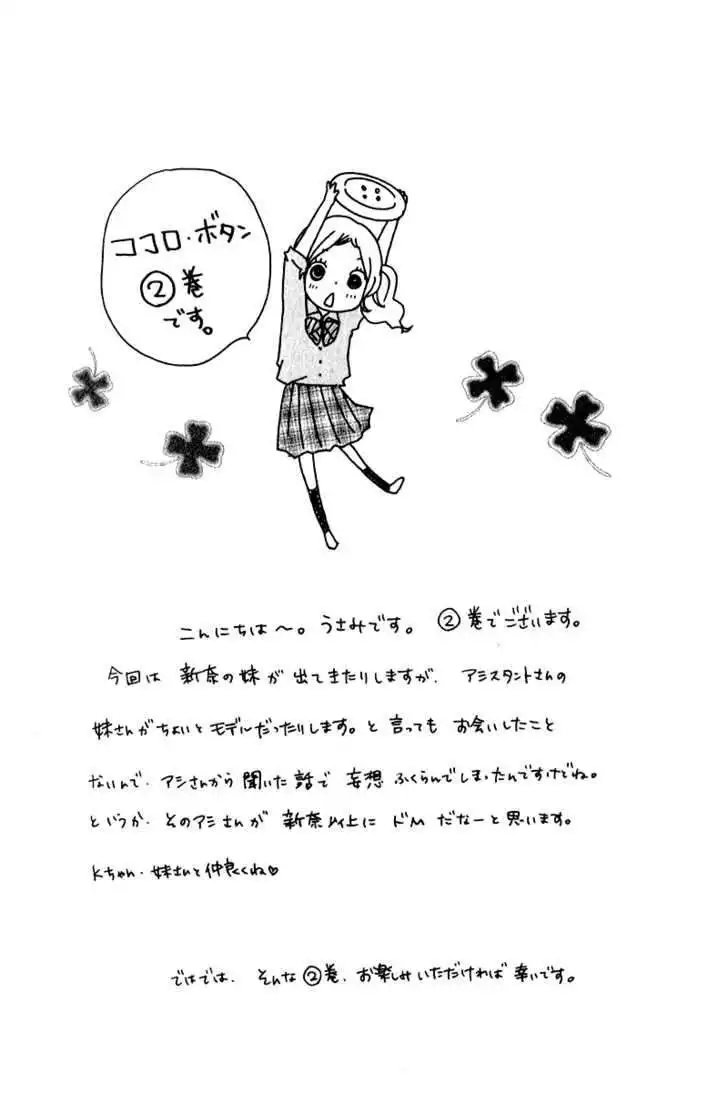 ココロ・ボタン
②巻
です。
こんにちは〜。うさみです。②巻でございます。
今回は 新奈の妹が出てきたりしますが、アシスタントさんの
妹さんがちょいとモデルだったりします。と言っても お会いしたこと
ないんで、アシさんから聞いた話で 妄想ふくらんでしまったんですけどね。
というか、そのアシさんが 新奈以上に ドMだなーと思います。
Kちゃん、妹さんと仲良くね♡
ではでは、そんな②巻、お楽しみいただければ幸いです。